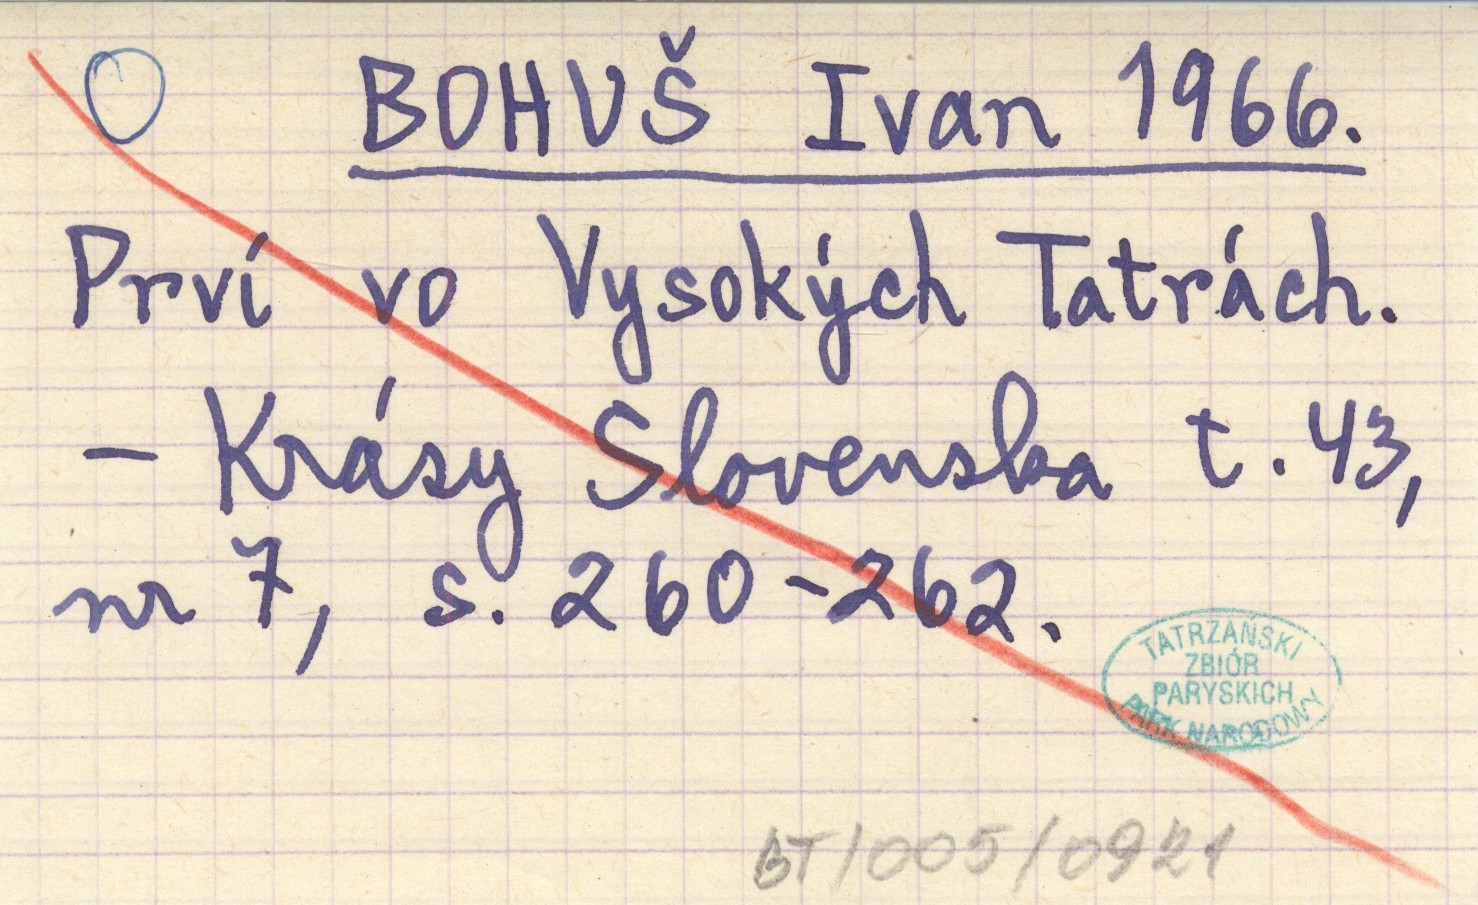 BOHUŠ Ivan 1966.
Prví vo Vysokých Tatrách.
– Krásy Slovenska t. 43,
nr 7, s. 260-262.
TATRZAŃSKI
ZBIÓR
PARYSKICH
PARK NARODOWY
BT/005/0921